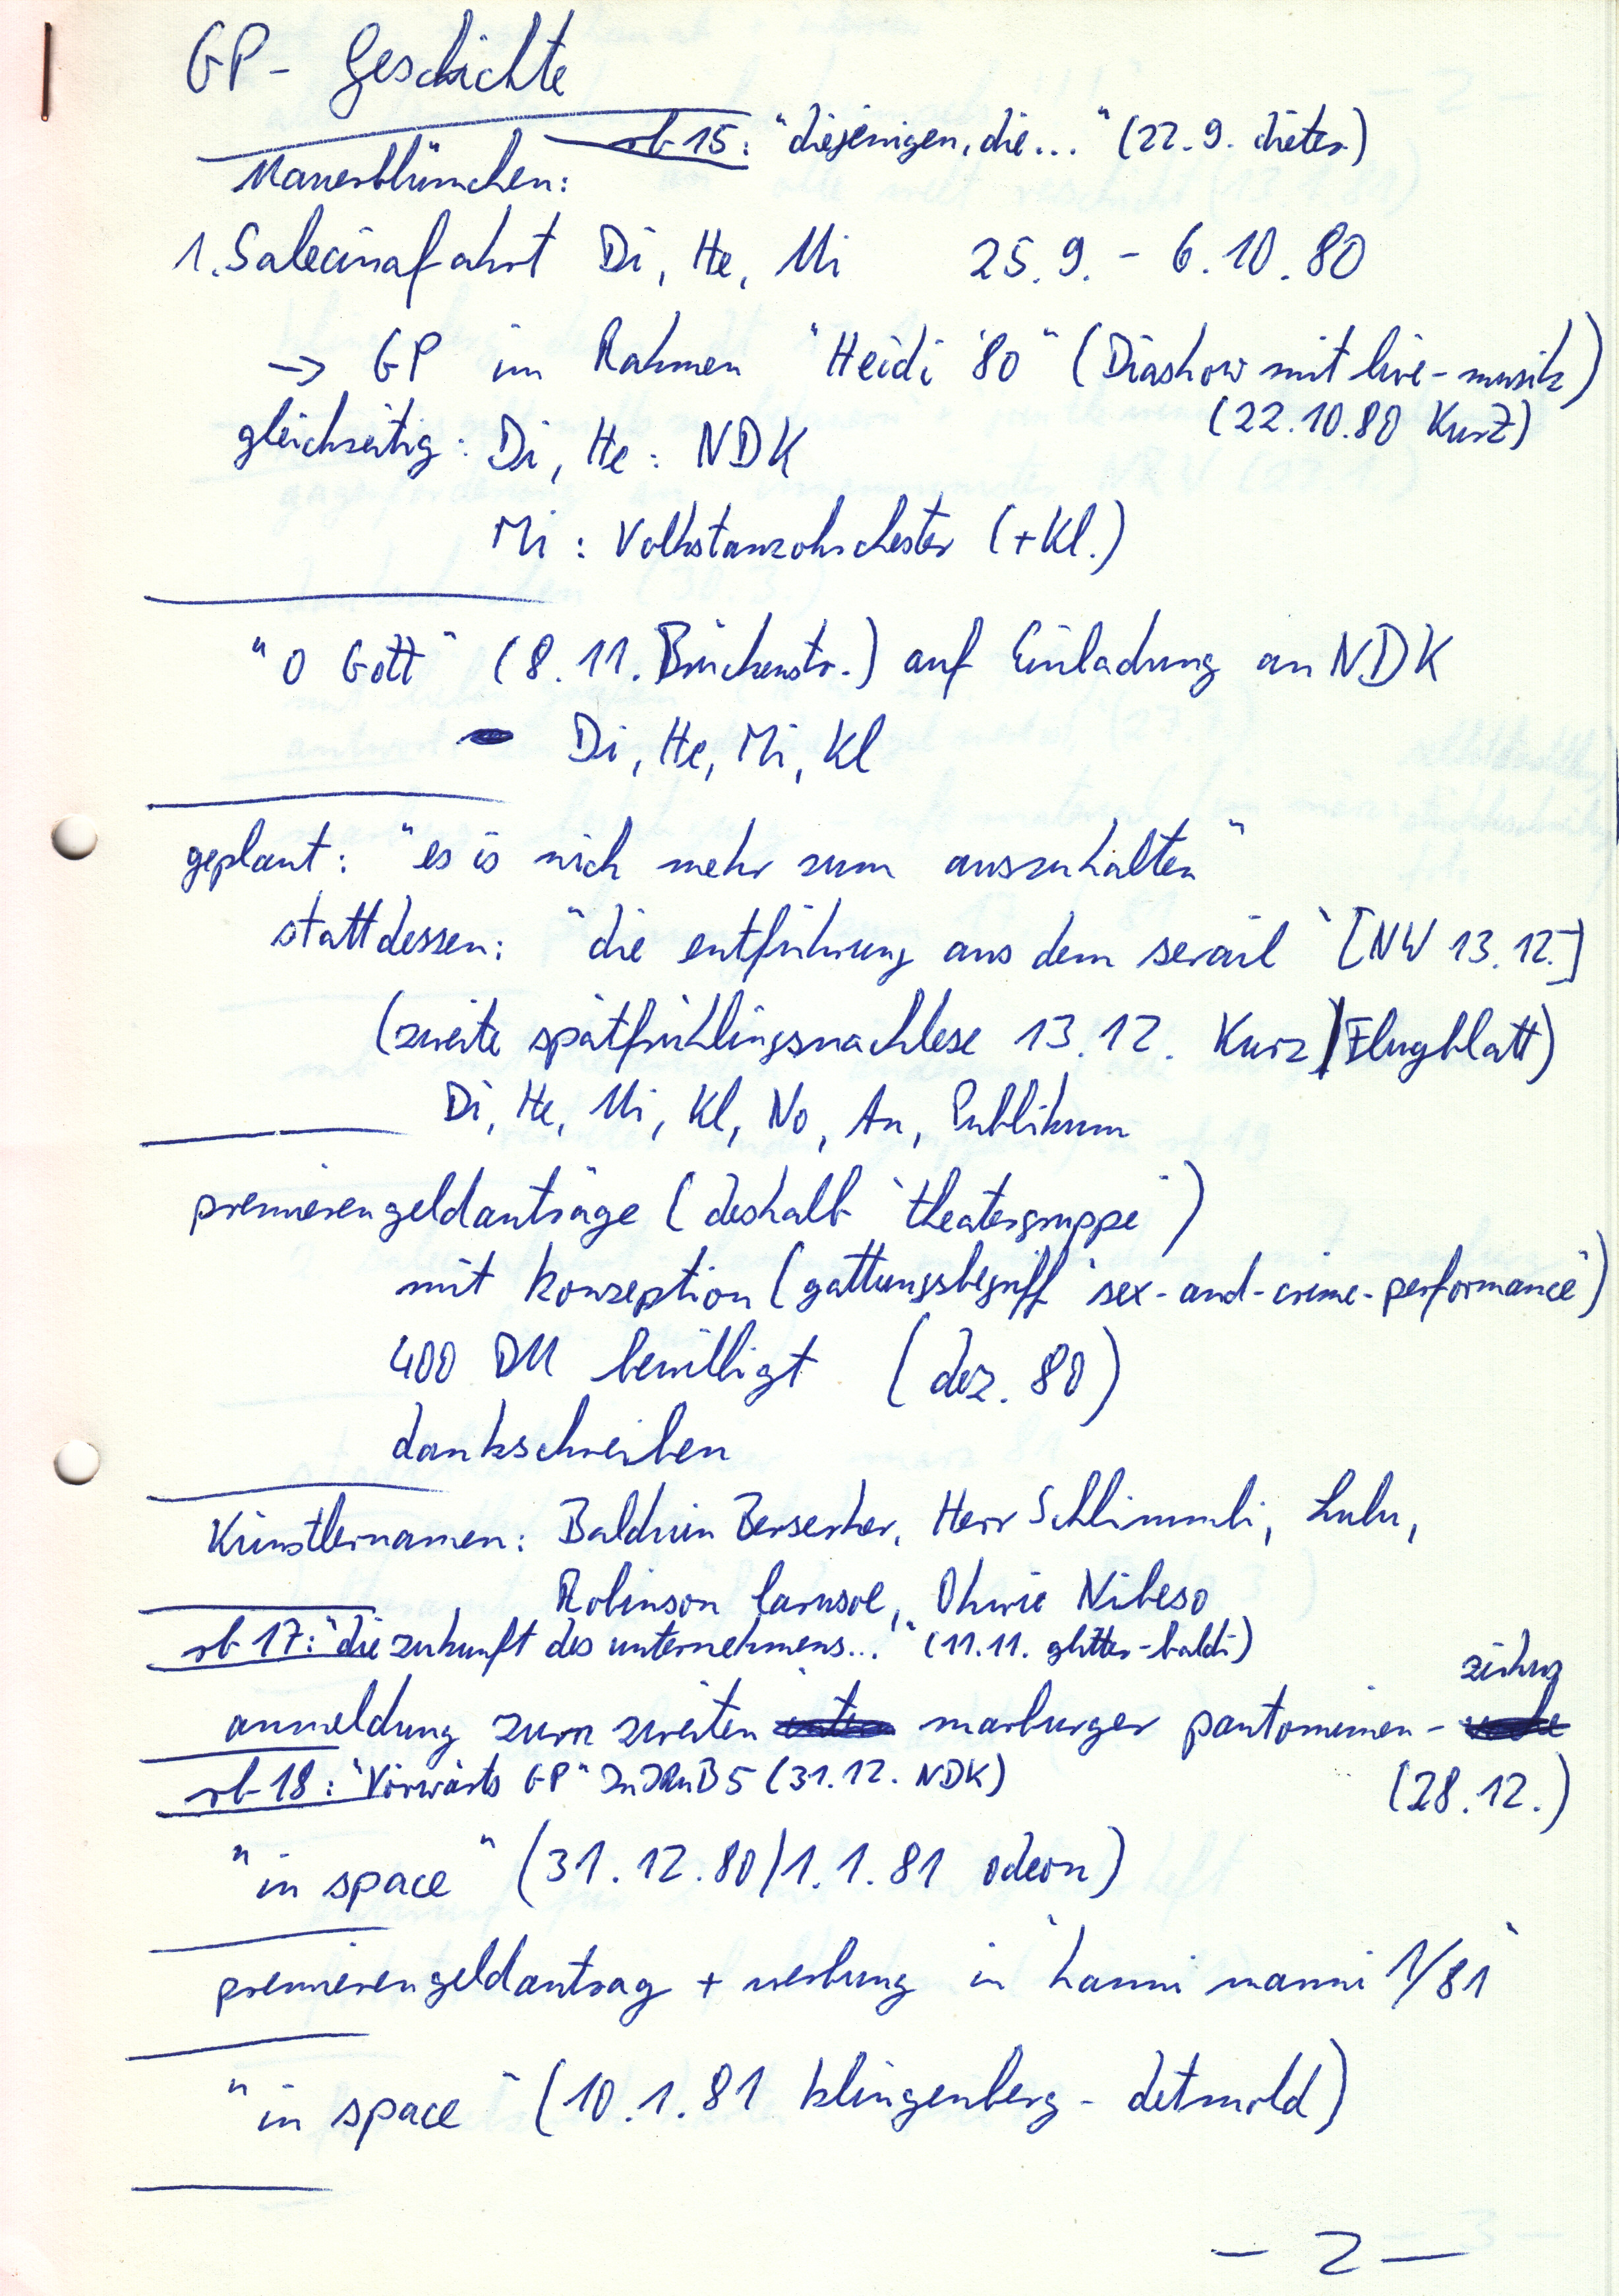 GP - Geschichte
rb 15: "diejenigen, die..." (22.9. dieter)
Mauerblümchen:
1. Salecinafahrt Di, He, Mi 25.9. - 6.10.80
→ GP im Rahmen "Heidi '80" (Diashow mit live-musik)
(22.10.80 KurZ)
gleichzeitig: Di, He: NDK
Mi: Volkstanzohrchester (+Kl.)
"O Gott" (8.11. Brückenstr.) auf Einladung an NDK
Di, He, Mi, Kl
geplant: "es is nich mehr zum auszuhalten"
stattdessen: "die entführung aus dem serail" [NW 13.12.]
(zweite spätfrühlingsnachlese 13.12. Kurz/Flugblatt)
Di, He, Mi, Kl, No, An, Publikum
premierengeldanträge (deshalb "theatergruppe")
mit konzeption (gattungsbegriff "sex-and-crime-performance")
400 DM bewilligt (dez. 80)
dankschreiben
Künstlernamen: Balduin Berserker, Herr Schlimmli, Lulu,
Robinson Carusoe, Ohwie Nibeso
rb 17: "die zukunft des unternehmens..." (11.11. glitter-baldi)
anmeldung zum zweiten marburger pantomimen-
rb 18: "Vorwärts GP" (31.12. NDK)
(28.12.)
"in space" (31.12.80/1.1.81 odeon)
premierengeldantrag + werbung in "hanni manni 1/81"
"in space" (10.1.81 klingenberg - detmold)
- 2 -